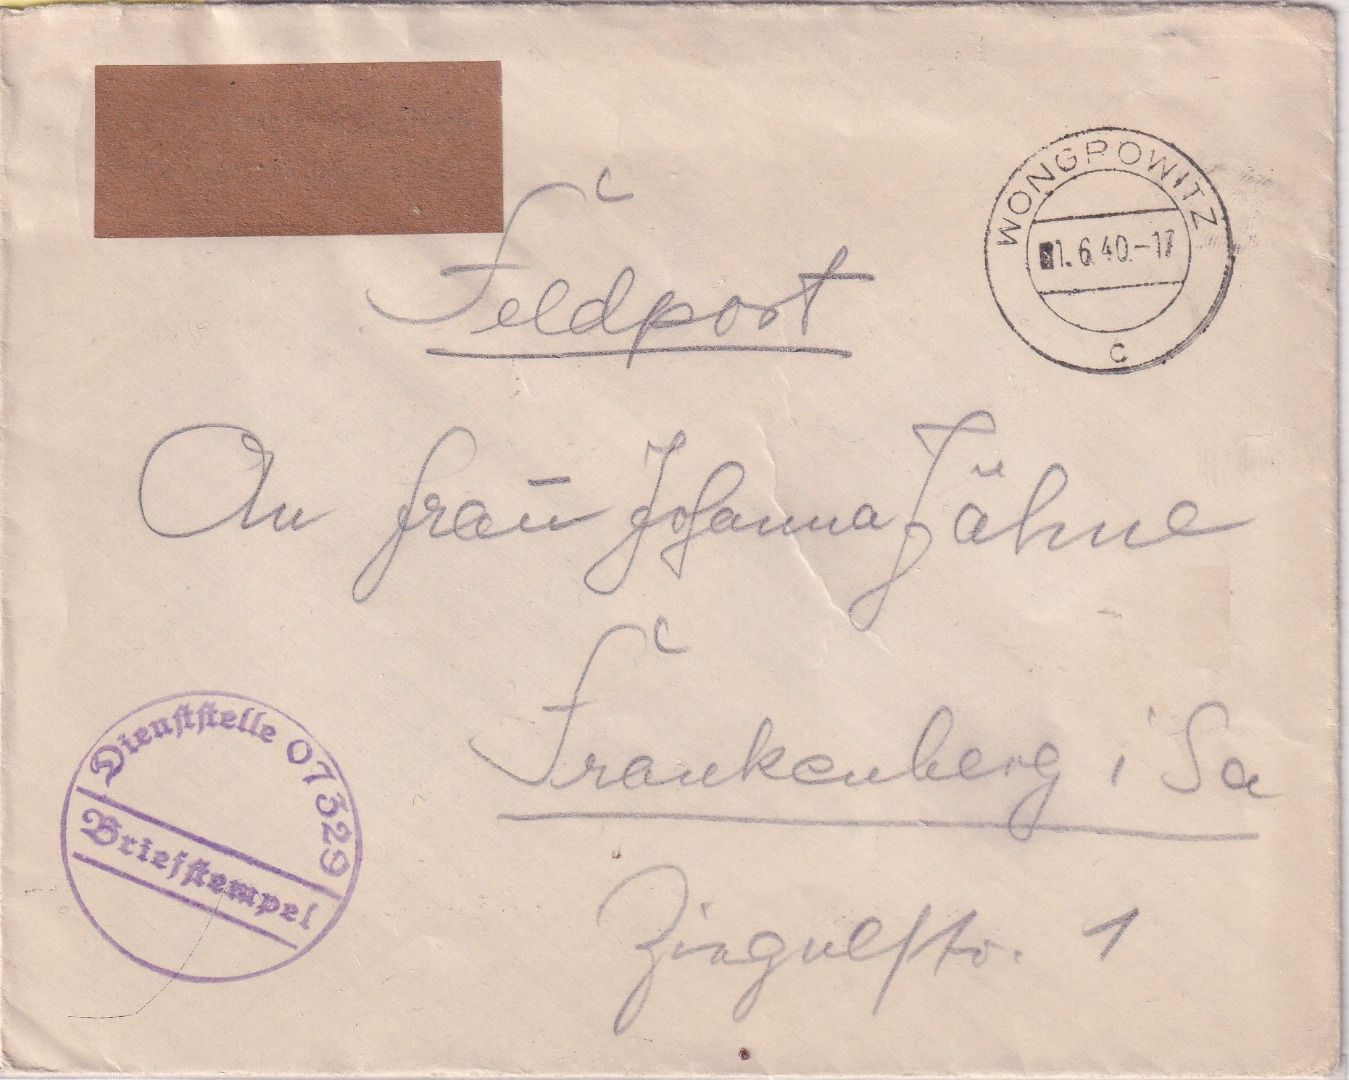 WONGROWITZ
1.6.40.-17
c
Feldpost
An Frau Johanna Jähne
Frankenberg i Sa
Ziegelstr. 1
Dienststelle 07329
Briefstempel